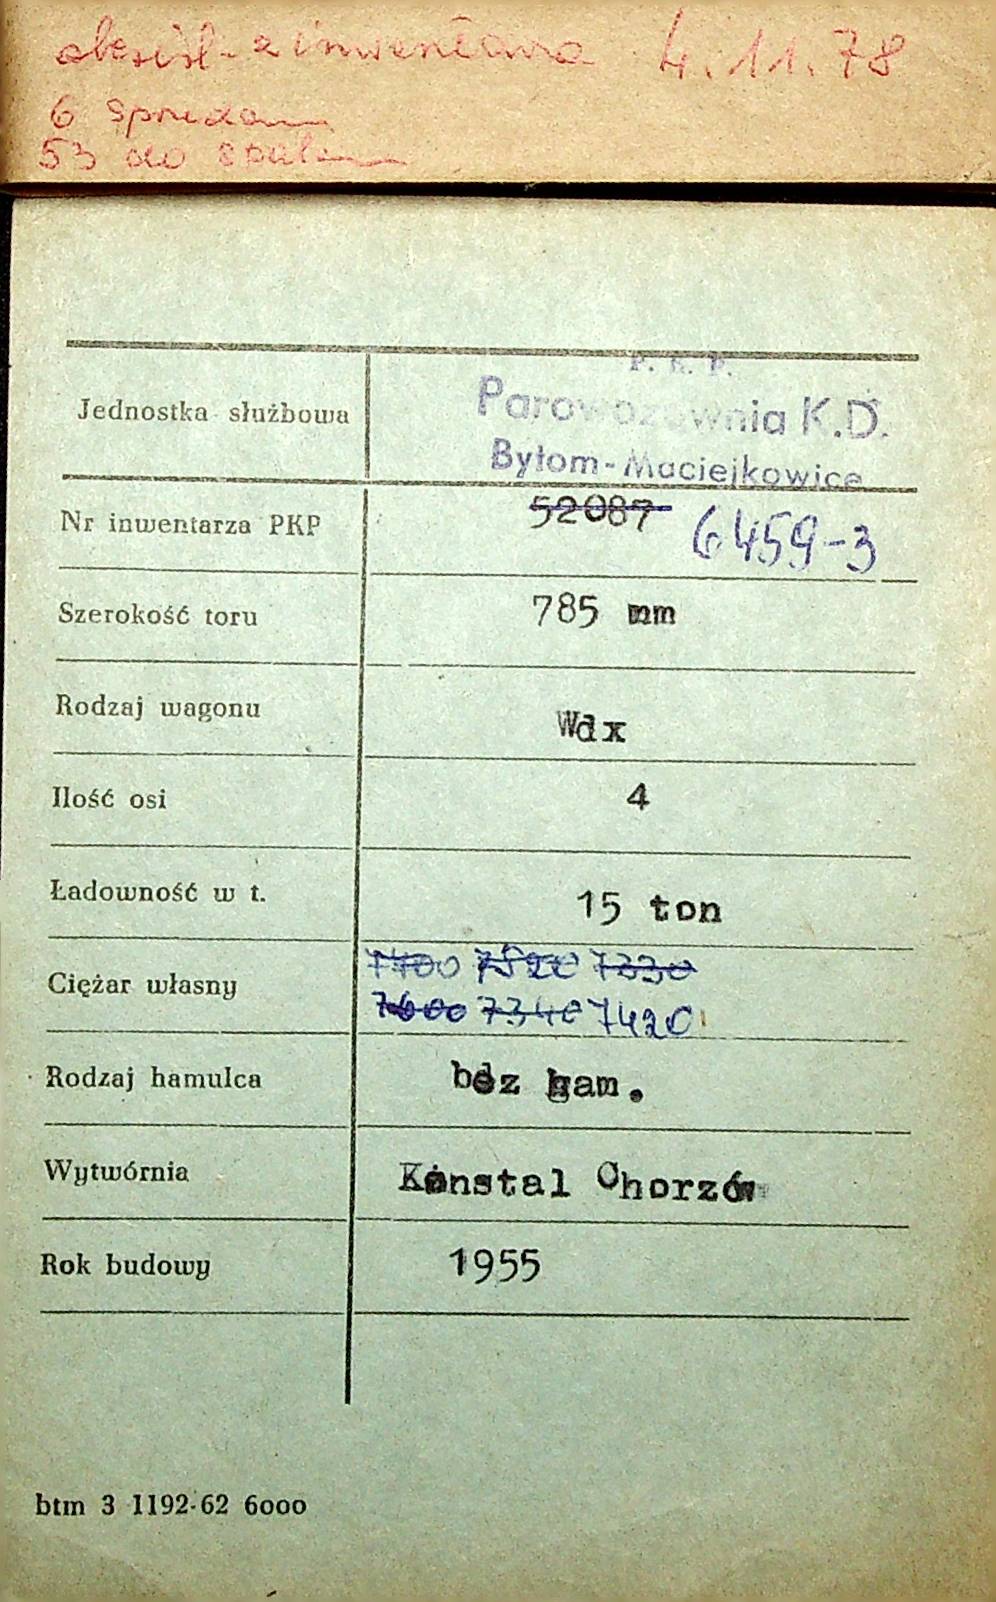 z inwentarza 4.11.78
6
53 do
P. K. P.
Parowozownia K.D.
Jednostka służbowa
Bytom-Maciejkowice
Nr inwentarza PKP 52087 6459-3
Szerokość toru 785 mm
Rodzaj wagonu Wdx
Ilość osi 4
Ładowność w t. 15 ton
7400 7520 7330
Ciężar własny
7600 7340 7420
Rodzaj hamulca bez ham.
Wytwórnia Konstal Chorzów
Rok budowy 1955
btm 3 1192-62 6000